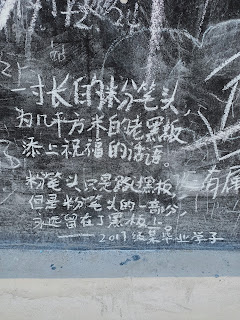 一寸长的粉笔头，
为几平方米的老黑板
添上祝福的话语。
粉笔头只是路过黑板，
但是粉笔头的一部分，
永远留在了黑板上
——2017级某毕业学子